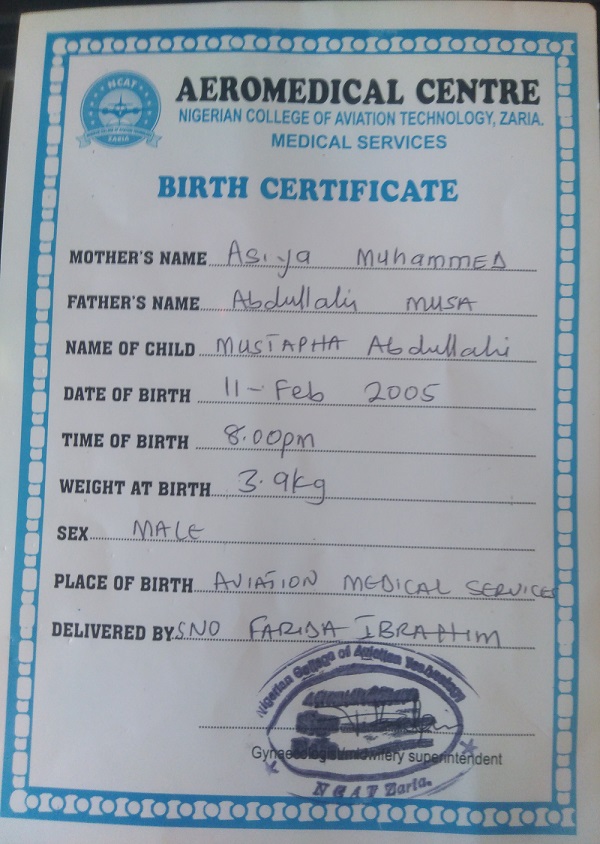 NCAT
ZARIA
AEROMEDICAL CENTRE
NIGERIAN COLLEGE OF AVIATION TECHNOLOGY, ZARIA.
MEDICAL SERVICES
BIRTH CERTIFICATE
MOTHER'S NAME Asiya Muhammed
FATHER'S NAME Abdullahi MUSA
NAME OF CHILD MUSTAPHA Abdullahi
DATE OF BIRTH 11- Feb 2005
TIME OF BIRTH 8.00pm
WEIGHT AT BIRTH 3.9kg
SEX MALE
PLACE OF BIRTH AVIATION MEDICAL SERVICES
DELIVERED BY SNO FARIDA IBRAHIM
Nigerian College of Aviation Technology
Gynaecologist/midwifery superintendent
Zaria.